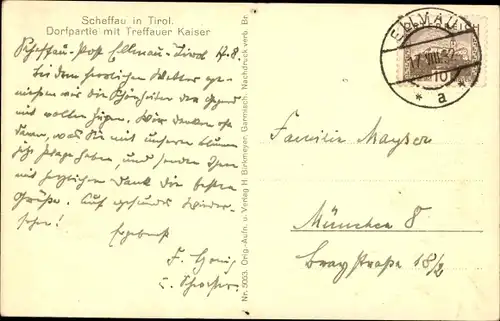 Scheffau in Tirol.
Dorfpartie mit Treffauer Kaiser
Scheffau - Post Ellmau - Tirol
Bei dem herrlichen Wetter ge-
nießen wir die Schönheiten der Gegend
mit vollen Zügen. Wir denken oft
daran, was Sie mit unseren Blumen
jetzt Plage haben, und senden Ihnen
mit herzlichem Dank die besten
Grüße. Auf gesundes Wieder-
sehen!
Ergebenst
F.
Nr. 5003. Orig.-Aufn. u. Verlag H. Birkmeyer, Garmisch. Nachdruck verb. Br.
ELLMAU
17.VIII
10
* a *
Familie Mayser
München 8
18/2